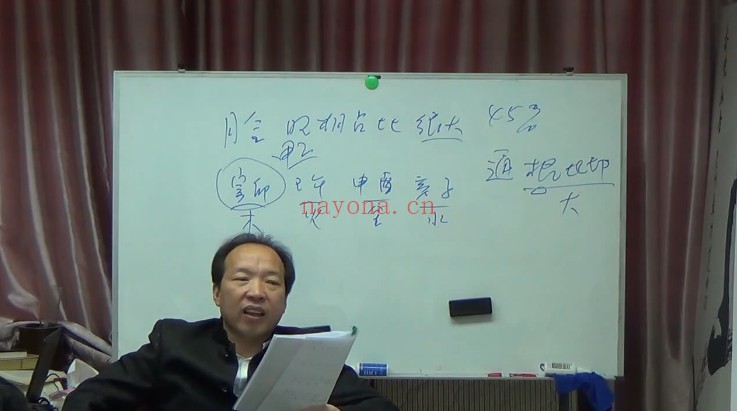 月令 旺相占比很大 45%
甲乙
通根比
寅卯 巳午 申酉 亥子
大
nayona.cn
木 火 金 水